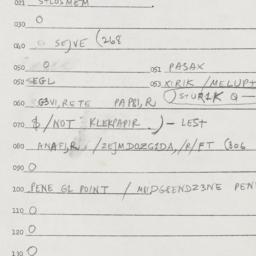 021 STLOSMEM
030 O
040 SEJVE (268
050 O 051 PASAX
052 SEGL 053 XIRIK /MELUPT
060 G3VI,RETE PAPSI,R STURIK Q —
070 $/NOT KLEKPAPIR.) — LEST
080 ANAFI,R /ZEJMDOZGIDA,/R/FT (306
090 O
100 PENE GL POINT / PEN
110 O
120 O
130 O